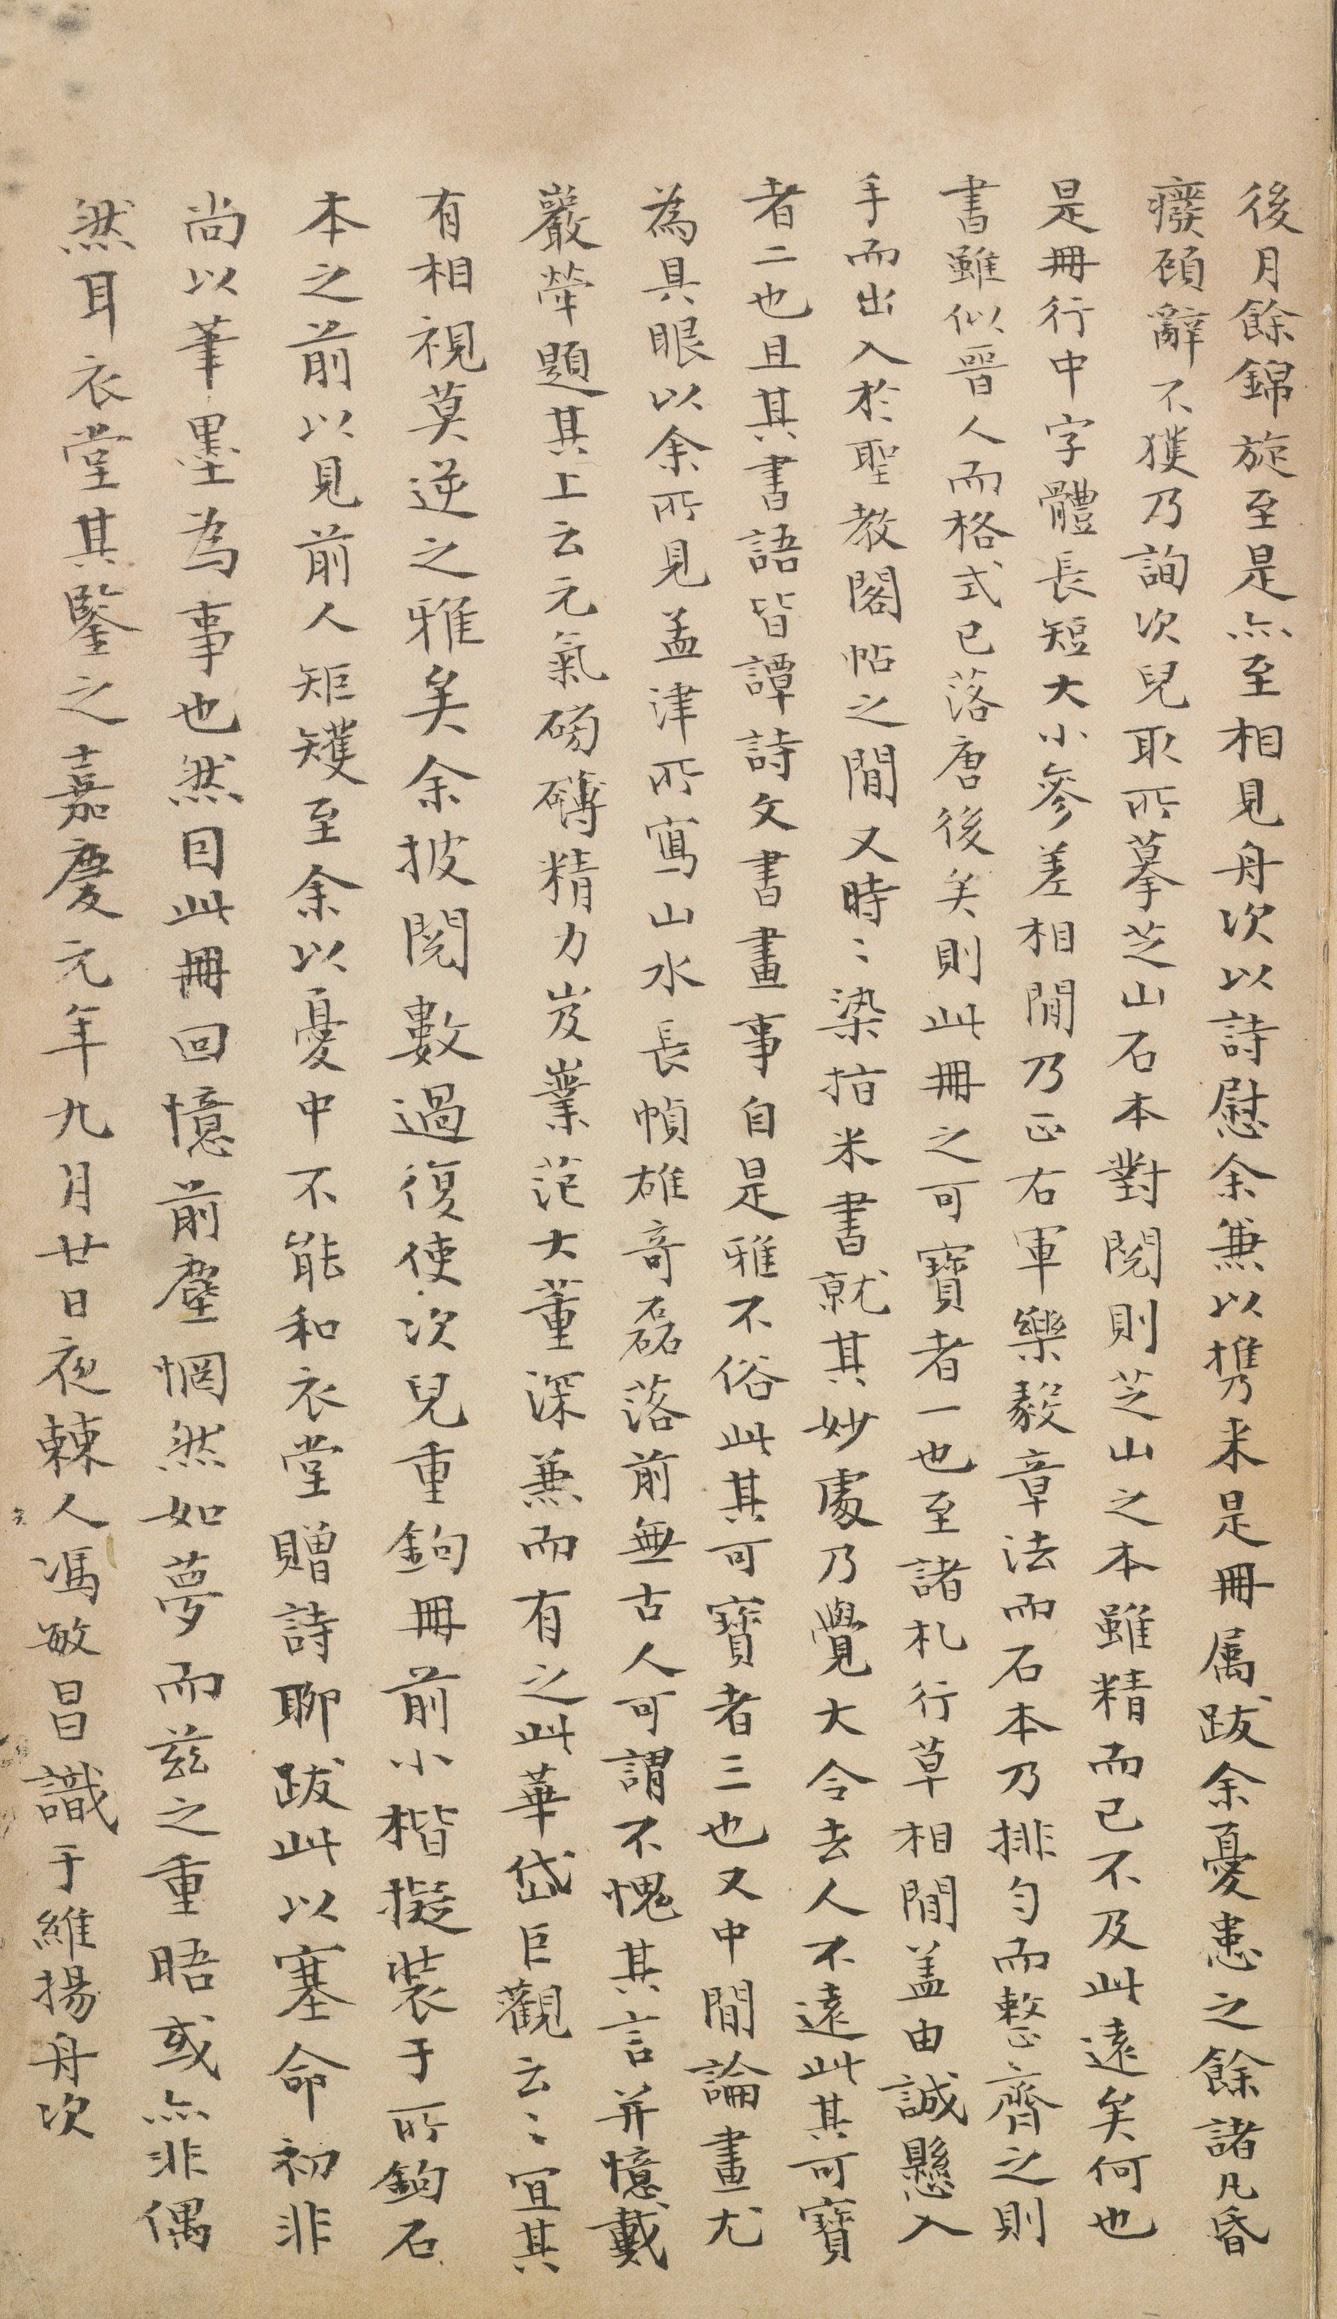 後月餘錦旋至是亦至相見舟次以詩慰余兼以携来是冊属跋余憂患之餘諸凡昏
癈頋辭不獲乃詢次兒取所摹芝山石本對閱則芝山之本雖精而已不及此遠矣何也
是冊行中字體長短大小參差相間乃正右軍樂毅章法而石本乃排勻而整齊之則
書雖似晉人而格式已落唐後矣則此冊之可寶者一也至諸札行草相間盖由誠懸入
手而出入於聖教閣帖之間又時〻染指米書就其妙處乃覺大令去人不遠此其可寶
者二也且其書語皆譚詩文書畫事自是雅不俗此其可寶者三也又中間論畫尤
為具眼以余所見孟津所寫山水長幀雄奇磊落前無古人可謂不愧其言并憶戴
巖犖題其上云元氣磅礴精力岌嶪范大董深兼而有之此華岱巨觀云〻宜其
有相視莫逆之雅矣余披閱數過復使次兒重鉤冊前小楷擬裝于所鉤石
本之前以見前人矩矱至余以憂中不能和衣堂贈詩聊跋此以塞命初非
尚以筆墨為事也然因此冊回憶前塵惘然如夢而兹之重晤或亦非偶
然耳衣堂其鑒之嘉慶元年九月廿日夜棘人馮敏昌識于維揚舟次